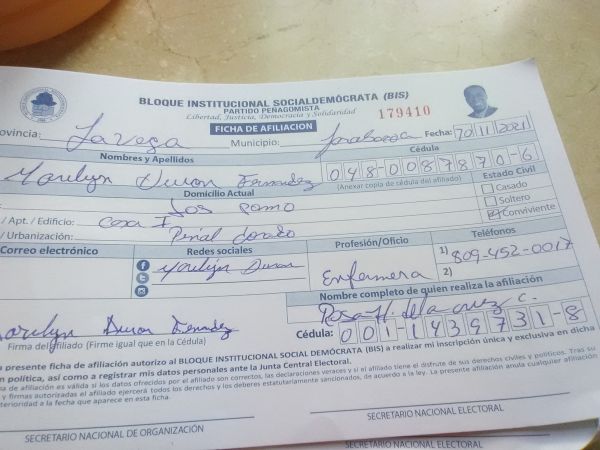 BLOQUE INSTITUCIONAL SOCIALDEMÓCRATA (BIS)
PARTIDO PEÑAGOMISTA
Libertad, Justicia, Democracia y Solidaridad
179410
FICHA DE AFILIACION
rovincia: La vega Municipio: Jarabacoa Fecha: 20 11 2021
Nombres y Apellidos Cédula
Marilyn Duran Fernandez 048-0087870-6
(Anexar copia de cédula del afiliado)
Domicilio Actual Estado Civil
Los pomo Casado
/ Apt. / Edificio: casa 1 Soltero
/ Urbanización: Piñal dorado Conviviente
Correo electrónico Redes sociales Profesión/Oficio Teléfonos
Marilyn Duran Enfermera 1) 809-452-0017
2)
Nombre completo de quien realiza la afiliación
Rosa H. de la cruz C.
arilyn Duran Fernandez Cédula: 001-1439731-8
Firma del afiliado (Firme igual que en la Cédula)
presente ficha de afiliación autorizo al BLOQUE INSTITUCIONAL SOCIAL DEMÓCRATA (BIS) a realizar mi inscripción única y exclusiva en dicha
n política, así como a registrar mis datos personales ante la Junta Central Electoral.
ha de afiliación es válida si los datos ofrecidos por el afiliado son correctos, las declaraciones veraces y si el afiliado tiene el disfrute de sus derechos civiles y políticos. Tras su
y firmas autorizadas el afiliado ejercerá todos los derechos y los deberes estatutariamente sancionados, de acuerdo a la ley. La presente afiliación anula cualquier afiliación
terioridad a la fecha que aparece en esta ficha.
SECRETARIO NACIONAL DE ORGANIZACIÓN SECRETARIO NACIONAL ELECTORAL
SECRETARIO NACIONAL ELECTORAL